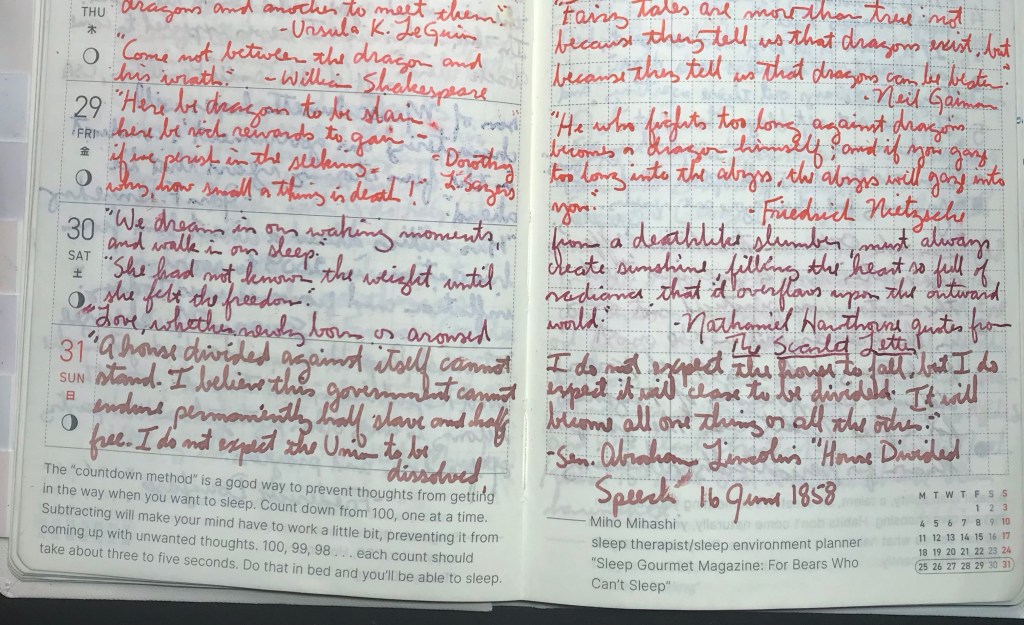 THU
木
dragons and another to meet them."
-Ursula K. LeGuin
"Come not between the dragon and
his wrath." - William Shakespeare
29
FRI
金
"Here be dragons to be slain-
here be rich rewards to gain -
if we perish in the seeking - - Dorothy
why, how small a thing is death!" L. Sayers
30
SAT
土
"We dream in our waking moments,
and walk in our sleep."
"She had not known the weight until
she felt the freedom."
"Love, whether newly born or aroused
31
SUN
日
"A house divided against itself cannot
stand. I believe this government cannot
endure permanently half slave and half
free. I do not expect the Union to be
dissolved
The "countdown method" is a good way to prevent thoughts from getting
in the way when you want to sleep. Count down from 100, one at a time.
Subtracting will make your mind have to work a little bit, preventing it from
coming up with unwanted thoughts. 100, 99, 98 . . . each count should
take about three to five seconds. Do that in bed and you'll be able to sleep.
"Fairy tales are more than true not
because they tell us that dragons exist, but
because they tell us that dragons can be beaten"
-Neil Gaiman
"He who fights too long against dragons
becomes a dragon himself; and if you gaze
too long into the abyss, the abyss will gaze into
you." - Friedrich Nietzsche
from a deathlike slumber must always
create sunshine, filling the heart so full of
radiance, that it overflows upon the outward
world." -Nathaniel Hawthorne quotes from
The Scarlet Letter
I do not expect the house to fall, but I do
expect it will cease to be divided. It will
become all one thing or all the other."
-Sen. Abraham Lincoln's "House Divided
Speech" 16 June 1858
Miho Mihashi
sleep therapist/sleep environment planner
"Sleep Gourmet Magazine: For Bears Who
Can't Sleep"
M T W T F S S
1 2 3
4 5 6 7 8 9 10
11 12 13 14 15 16 17
18 19 20 21 22 23 24
25 26 27 28 29 30 31